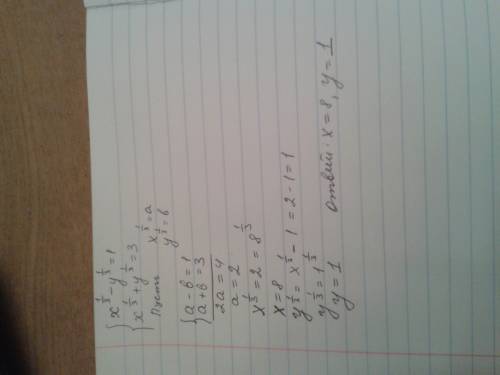 { x^{1/3} - y^{1/3} = 1
{ x^{1/3} + y^{1/3} = 3
Пусть x^{1/3} = a
y^{1/3} = b
{ a - b = 1
{ a + b = 3
2a = 4
a = 2
x^{1/3} = 2 = 8^{1/3}
x = 8
y^{1/3} = x^{1/3} - 1 = 2 - 1 = 1
y^{1/3} = 1^{1/3}
y = 1
Ответ: x = 8, y = 1